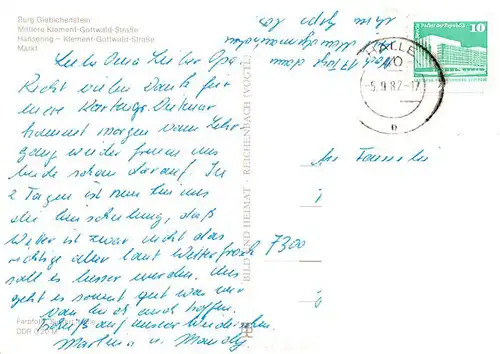 Burg Giebichenstein
Mittlere Klement-Gottwald-Straße
Hansering – Klement-Gottwald-Straße
Markt
Liebe Oma Lieber Opa.
Recht vielen Dank für
eure Karte
kommt morgen vom Lehr-
gang wieder freuen uns
beide schon darauf. In
2 Tagen ist nun bei uns
die Einschulung, daß
Wetter ist zwar nicht das
richtige aber laut Wetterfrosch
soll es besser werden. Uns
geht es soweit gut was wir
von Euch auch hoffen.
auf unser Wiedersehen.
Martina u. Mandy
Farbfoto:
DDR 0,20 M
BILD UND HEIMAT · REICHENBACH (VOGTL)
Nach
HALLE
-5.9.82-17
10
An Familie
7300